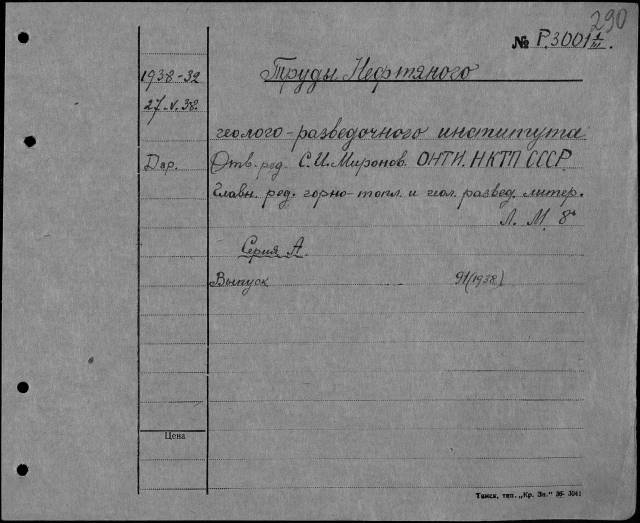 290
№ Р.3001 1/III
1938-32
Труды Нефтяного
27.V.38.
геолого-разведочного института
Дар.
Отв. ред. С.И. Миронов. ОНТИ. НКТП СССР.
Главн. ред. горно-топл. и геол. развед. литер.
Л. М. 8°
Серия А.
Выпуск 91(1938)
Цена
Томск, тип. „Кр. Зн." 36- 3041